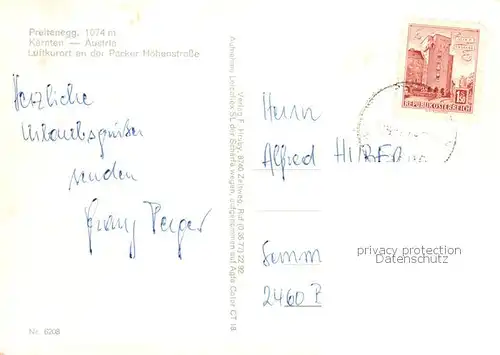 Preitenegg. 1074 m
Kärnten — Austria
Luftkurort an der Packer Höhenstraße
Herzliche
Urlaubsgrüße
senden
Verlag F. Hruby, 8740 Zeltweg, Ruf (0 35 77) 22 92
Aufnahme Leica-flex SL der Schärfe wegen, aufgenommen auf Agfa Color CT 18
REPUBLIK ÖSTERREICH
Herrn
Alfred
2460
privacy protection
Datenschutz
Nr. 6208